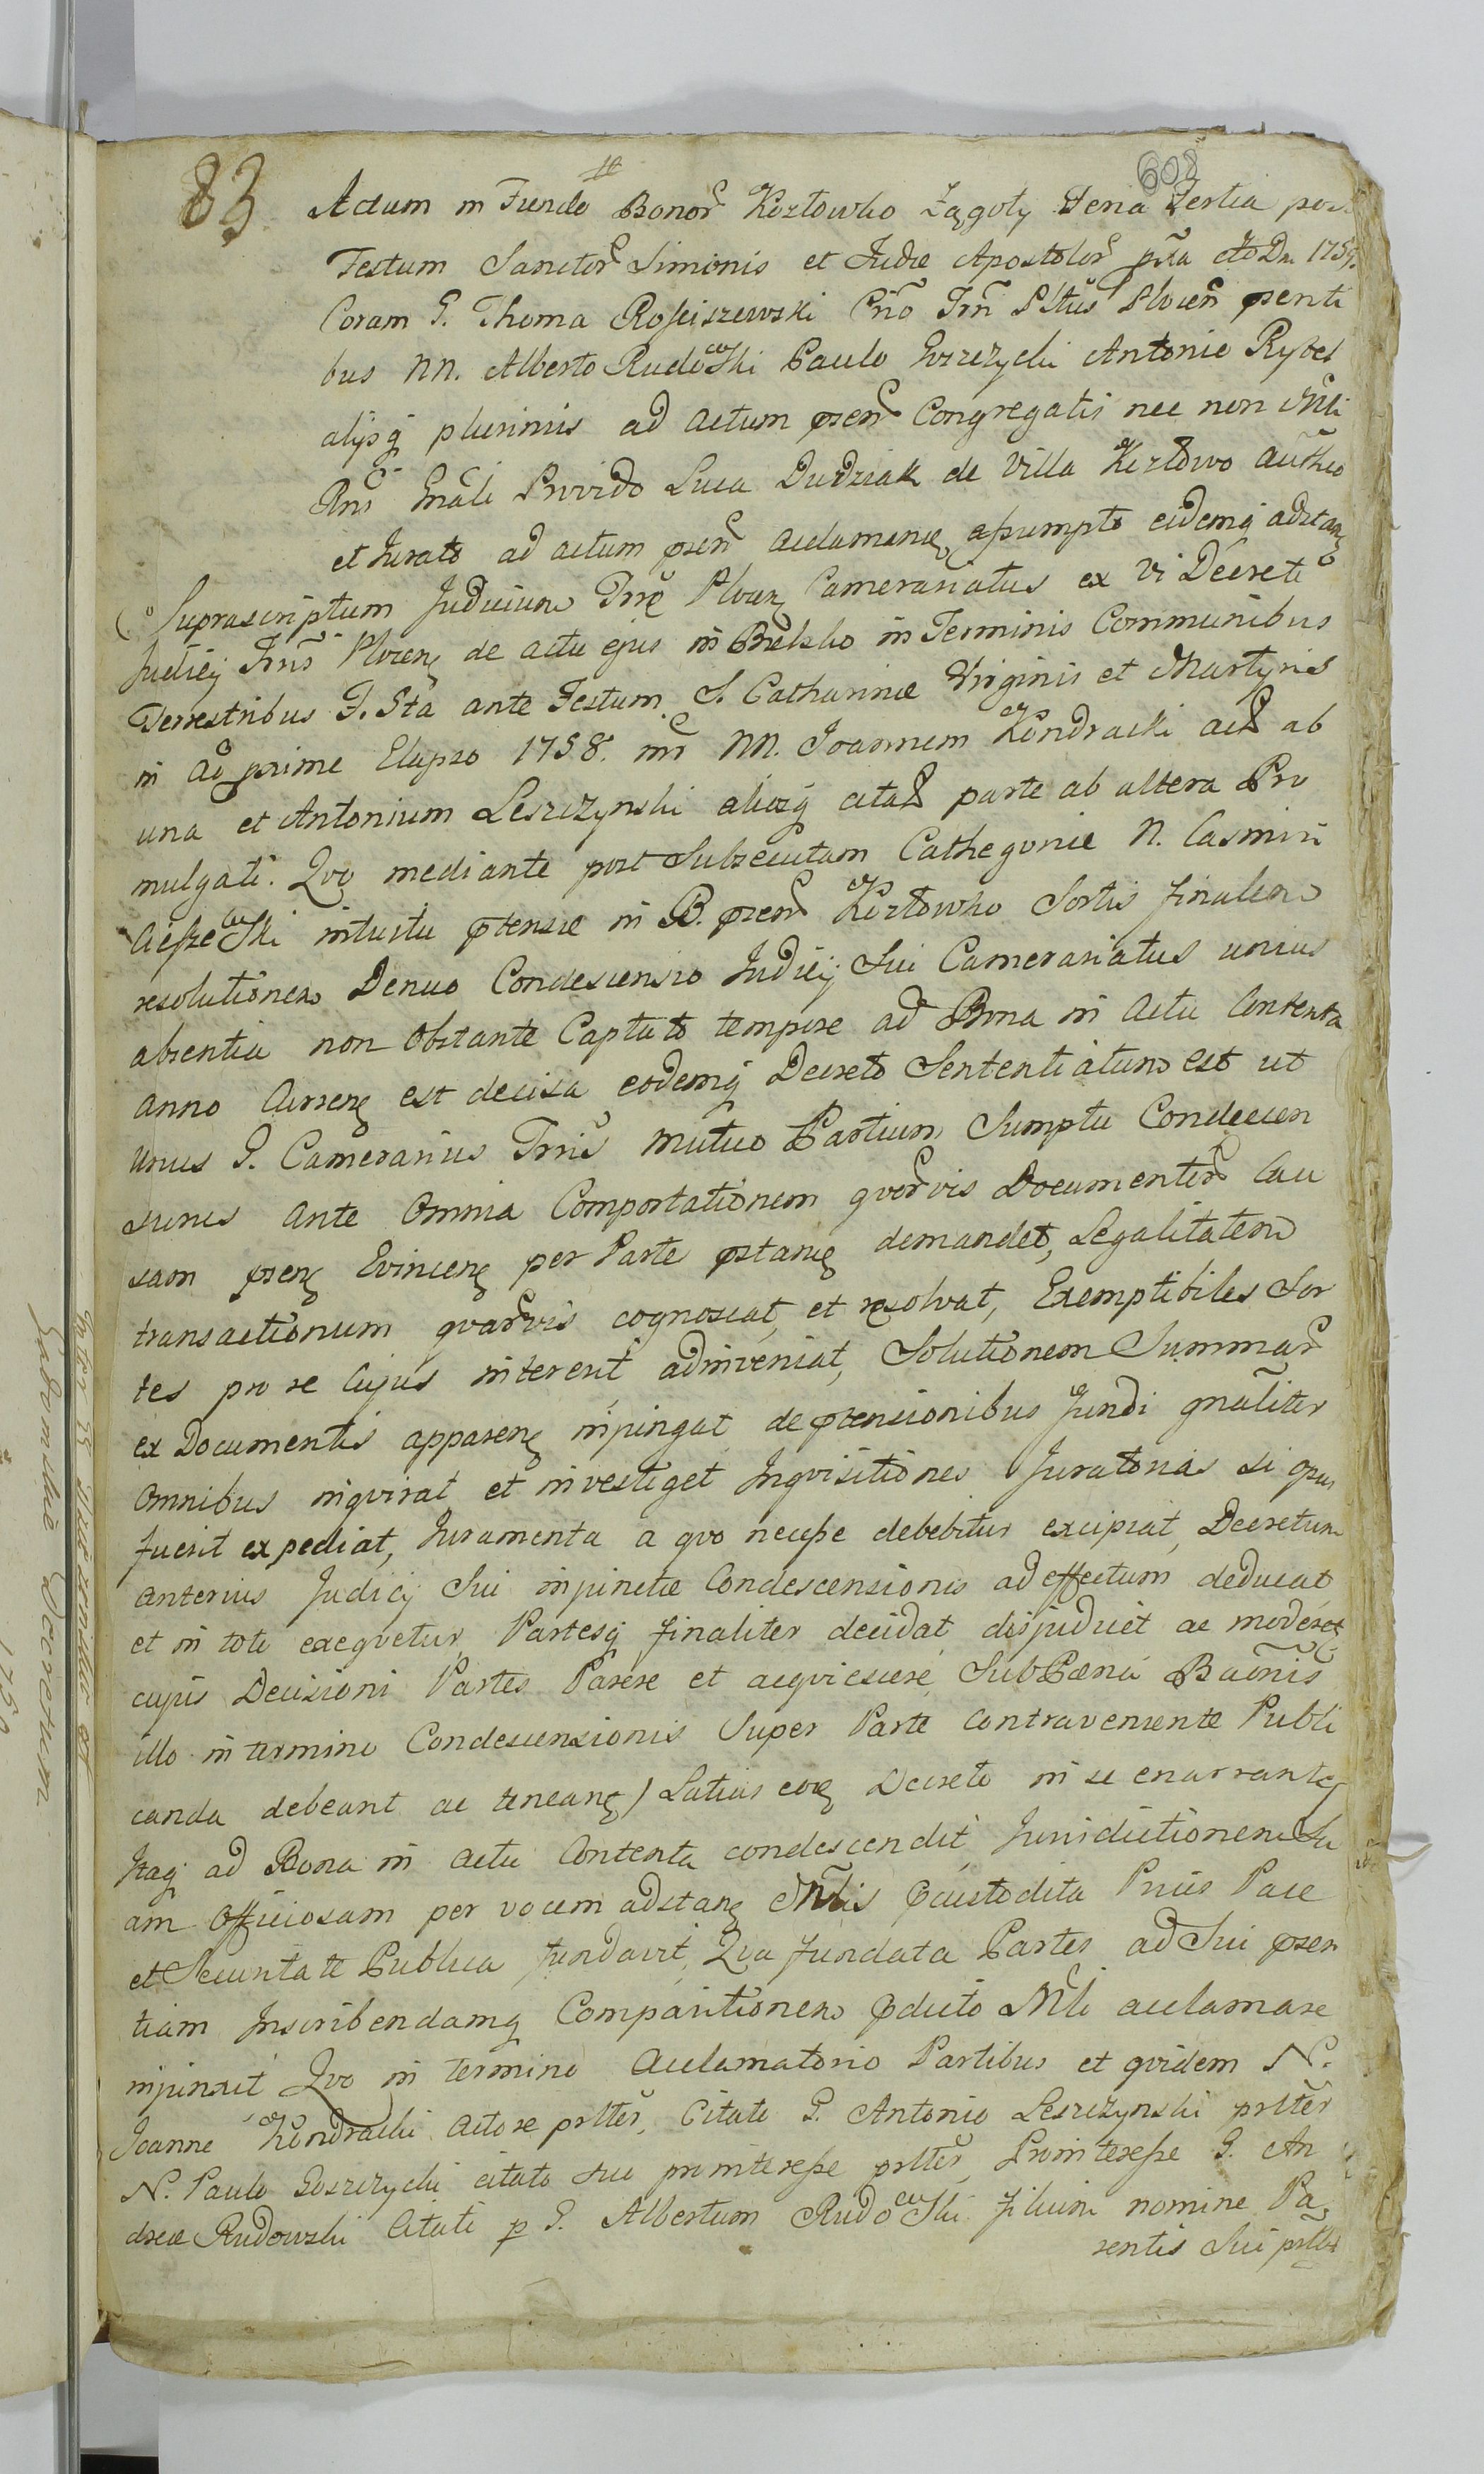 83
608
Actum in Fundo Bonor Kozłowko Zągoty Feria Tertia post
Festum Sanctor Simonis et Judæ Apostolor pxa Ao Dn 1759.
Coram G. Thoma Rościszewski Cno Trri Pltus Plocen psenti
bus NN. Alberto Rudowski Paulo Goszczycki Antonio Rybel
alijsq plurimis ad Actum psen Congregatis nec non Mli
Rni Gnali Provido Luca Dudziak de Villa Kozłowo Autheo
et Jurato ad actum psen acclamanu assumpto eidemq adstan
Suprascriptum Judicium Trre Plocen Camerariatus ex Vi Decreti
Judicij Trris Plocen de actu ejus in Bielsko in Terminis Communibus
Terrestribus F. 5ta ante Festum S. Catharinæ Virginis et Martyris
in Ao prime Elapso 1758. inr NN. Joannem Kondracki act ab
una et Antonium Leszczynski aliosq citat parte ab altera Pro
mulgati. Qvo mediante post Subsecutam Cathegoriæ N. Casimiri
Ciessewski intuitu ptensæ in B. psen Kozłowko Sortis finalem
resolutionem Denuo Condescensio Judicij Sui Camerariatus unius
absentia non Obstante Captato tempore ad Bona in Actu Contenta
anno Curren est decisa eodemq Decreto Sententiatum est ut
Unus G. Camerarius Trris mutuo Partium Sumptu Condescen
surus ante Omnia Comportationem qvorvis Documentor Cau
sam psen Evincen per Parte pstanu demandet, Legalitatem
transactionum qvarvis cognoscat, et resolvat, Exemptibiles Sor
tes pro re Cujus interent adinveniat, Solutionem Summar
ex Documentis apparen injungat de ptensionibus fundi gnaliter
Omnibus inqvirat et investiget Inqvisitiones Juratorias si opus
fuerit expediat, Juramenta a qvo necesse debebitur excipiat, Decretum
anterius Judicij Sui injunctæ Condescensionis ad effectum deducat
et in toto exeqvetur Partesq finaliter decidat disjudicet ac moderet
cujus Decisioni Partes Parere et acqviescere Sub Pænis Bannis
illo in termino Condescensionis Super Parte Contraveniente Publi
canda debeant ac tenean) Latius eor Decreto in se enarrante
Itaq ad Bona in actu Contenta condescendit, Jurisdictionem Su
am Officiosam per vocem adstan Mlis pcustodita Prius Pace
et Securitate Publica fundavit, Qva fundata Partes ad Sui psen
tiam Inscribendamq Comparitionem pdicto Mli acclamare
injunxit Qvo in termino Acclamatorio Partibus et qvidem N.
Joanne Kondracki Actore prltter, Citato G. Antonio Leszczynski prltter
N. Paulo Goszczycki citato suo pro interesse prltter Prointeresse G. An
dreæ Rudowski Citati p G. Albertum Rudowski filium nomine Pa
rentis Sui prltter